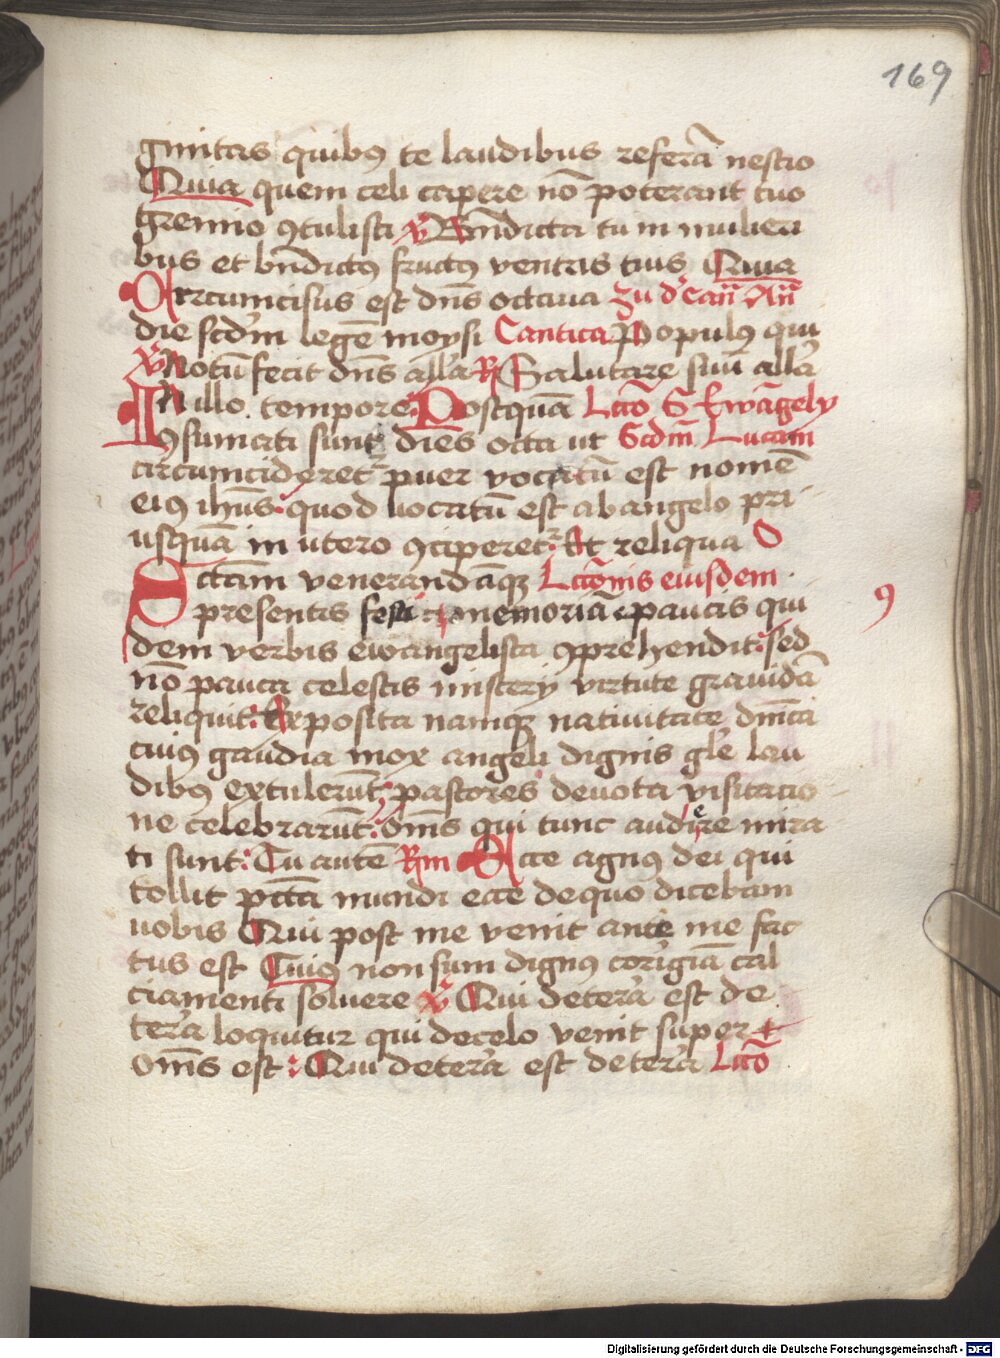 169
ginitas quibꝰ te laudibus referā nescio
Quia quem celi capere nō poterant tuo
gremio ꝯtulisti ℣ Bn̄dicta tu in mulieri
bus et bn̄dictꝰ fructꝰ ventris tui Quia
Circumcisus est dn̄s octaua zu dʼ can̄ An̄
die scd̄m legē moysi Cantica Populꝰ qui
℣ Notū fecit dn̄s all̄a ℟ Salutare suū all̄a
IN illo tempore Postquā Lcc̄o S Ewāgely
ꝯsumati sunt dies octa ut Scdm̄ Lucam
circumcideretʳ puer vocatū est nomē
eiꝰ ihūs quod uocatū est ab angelo pri
usquā in utero ꝯciperetʳ Et reliqua O
Sctām venerandāqꝫ Lcc̄onis eiusdem
presentis festi memoriā paucis qui
ꝯ
dem verbis ewangelista ꝯprehendit sed
nō pauca celestis misterij virtute grauidā
reliquit Exposita namqꝫ natiuitate dn̄ica
cuiꝰ gaudia mox angeli dignis gle lau
dibꝰ extulerūt pastores deuota visitatio
ne celebrarūt Om̄s qui tunc audiere mira
ti sunt Tu autē Rm Ecce agnꝰ dei qui
tollit pcc̄ta mundi ecce de quo dicebam
uobis Qui post me venit ante me fac
tus est Cuiꝰ non sum dignꝰ corigiā cal
ciamenti soluere ℣ Qui de terʼa est de
terʼa loquitur qui de celo venit super
om̄s est Qui de terʼa est de terʼa Lcc̄o
Digitalisierung gefördert durch die Deutsche Forschungsgemeinschaft - DFG